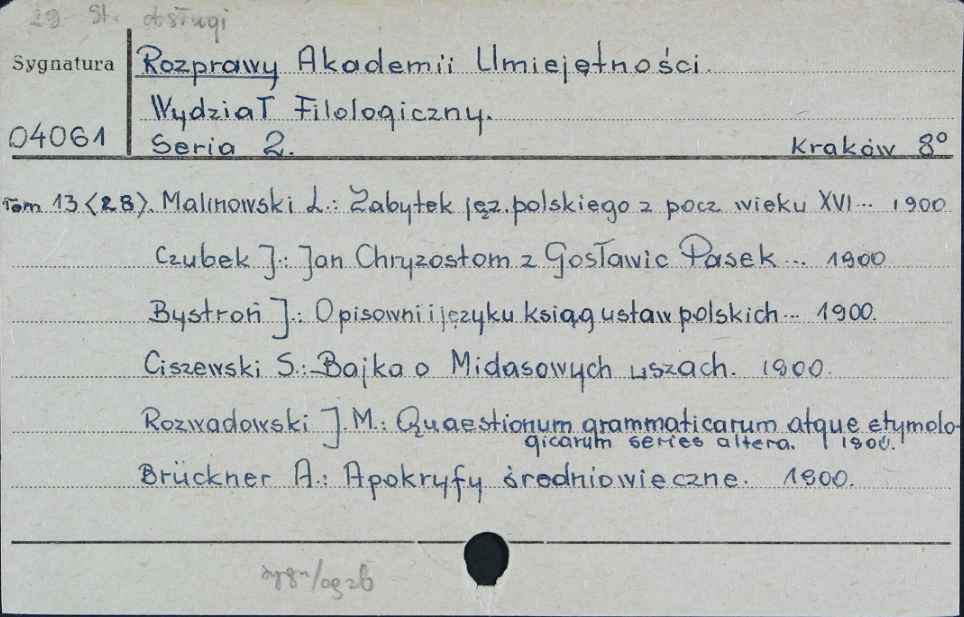 29 St. obsługi
Sygnatura Rozprawy Akademii Umiejętności.
Wydział Filologiczny.
04061 Seria 2. Kraków 8°
Tom 13 <28>. Malinowski L.: Zabytek jęz. polskiego z pocz wieku XVI... 1900
Czubek J.: Jan Chryzostom z Gosławic Pasek... 1900
Bystroń J.: O pisowni i języku ksiąg ustaw polskich... 1900.
Ciszewski S.: Bajka o Midasowych uszach. 1900.
Rozwadowski J. M.: Quaestionum grammaticarum atque etymolo-
gicarum series altera. 1900.
Brückner A.: Apokryfy średniowieczne. 1900.